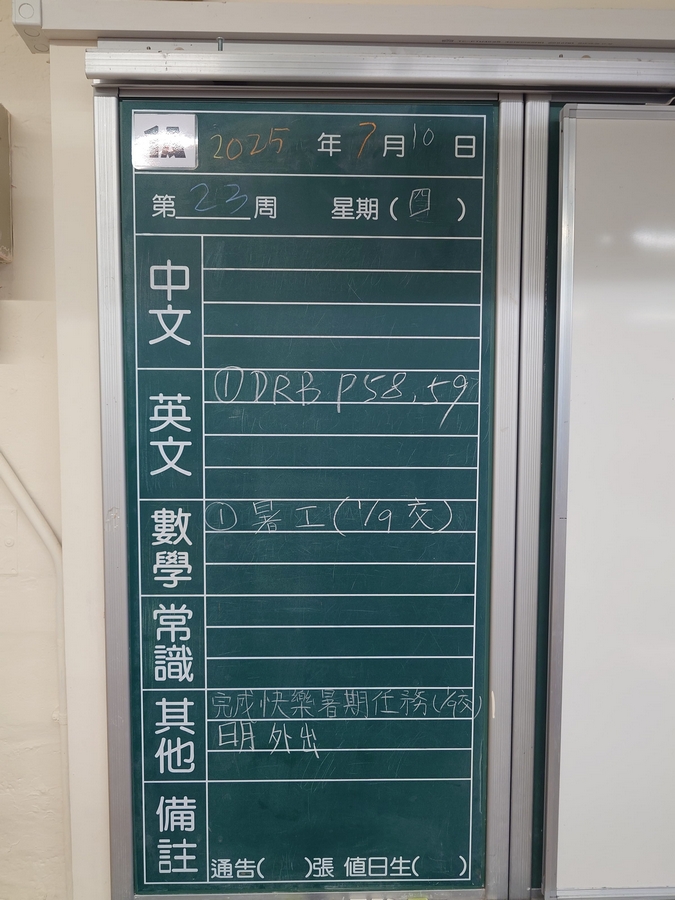 1A 2025 年 7 月 10 日
第 23 周 星期 ( 四 )
中文
英文 ① DRB P58, 59
數學 ① 暑工 (1/9 交)
常識
其他 完成快樂暑期任務 (1/9交)
明外出
備註
通告( )張 值日生( )